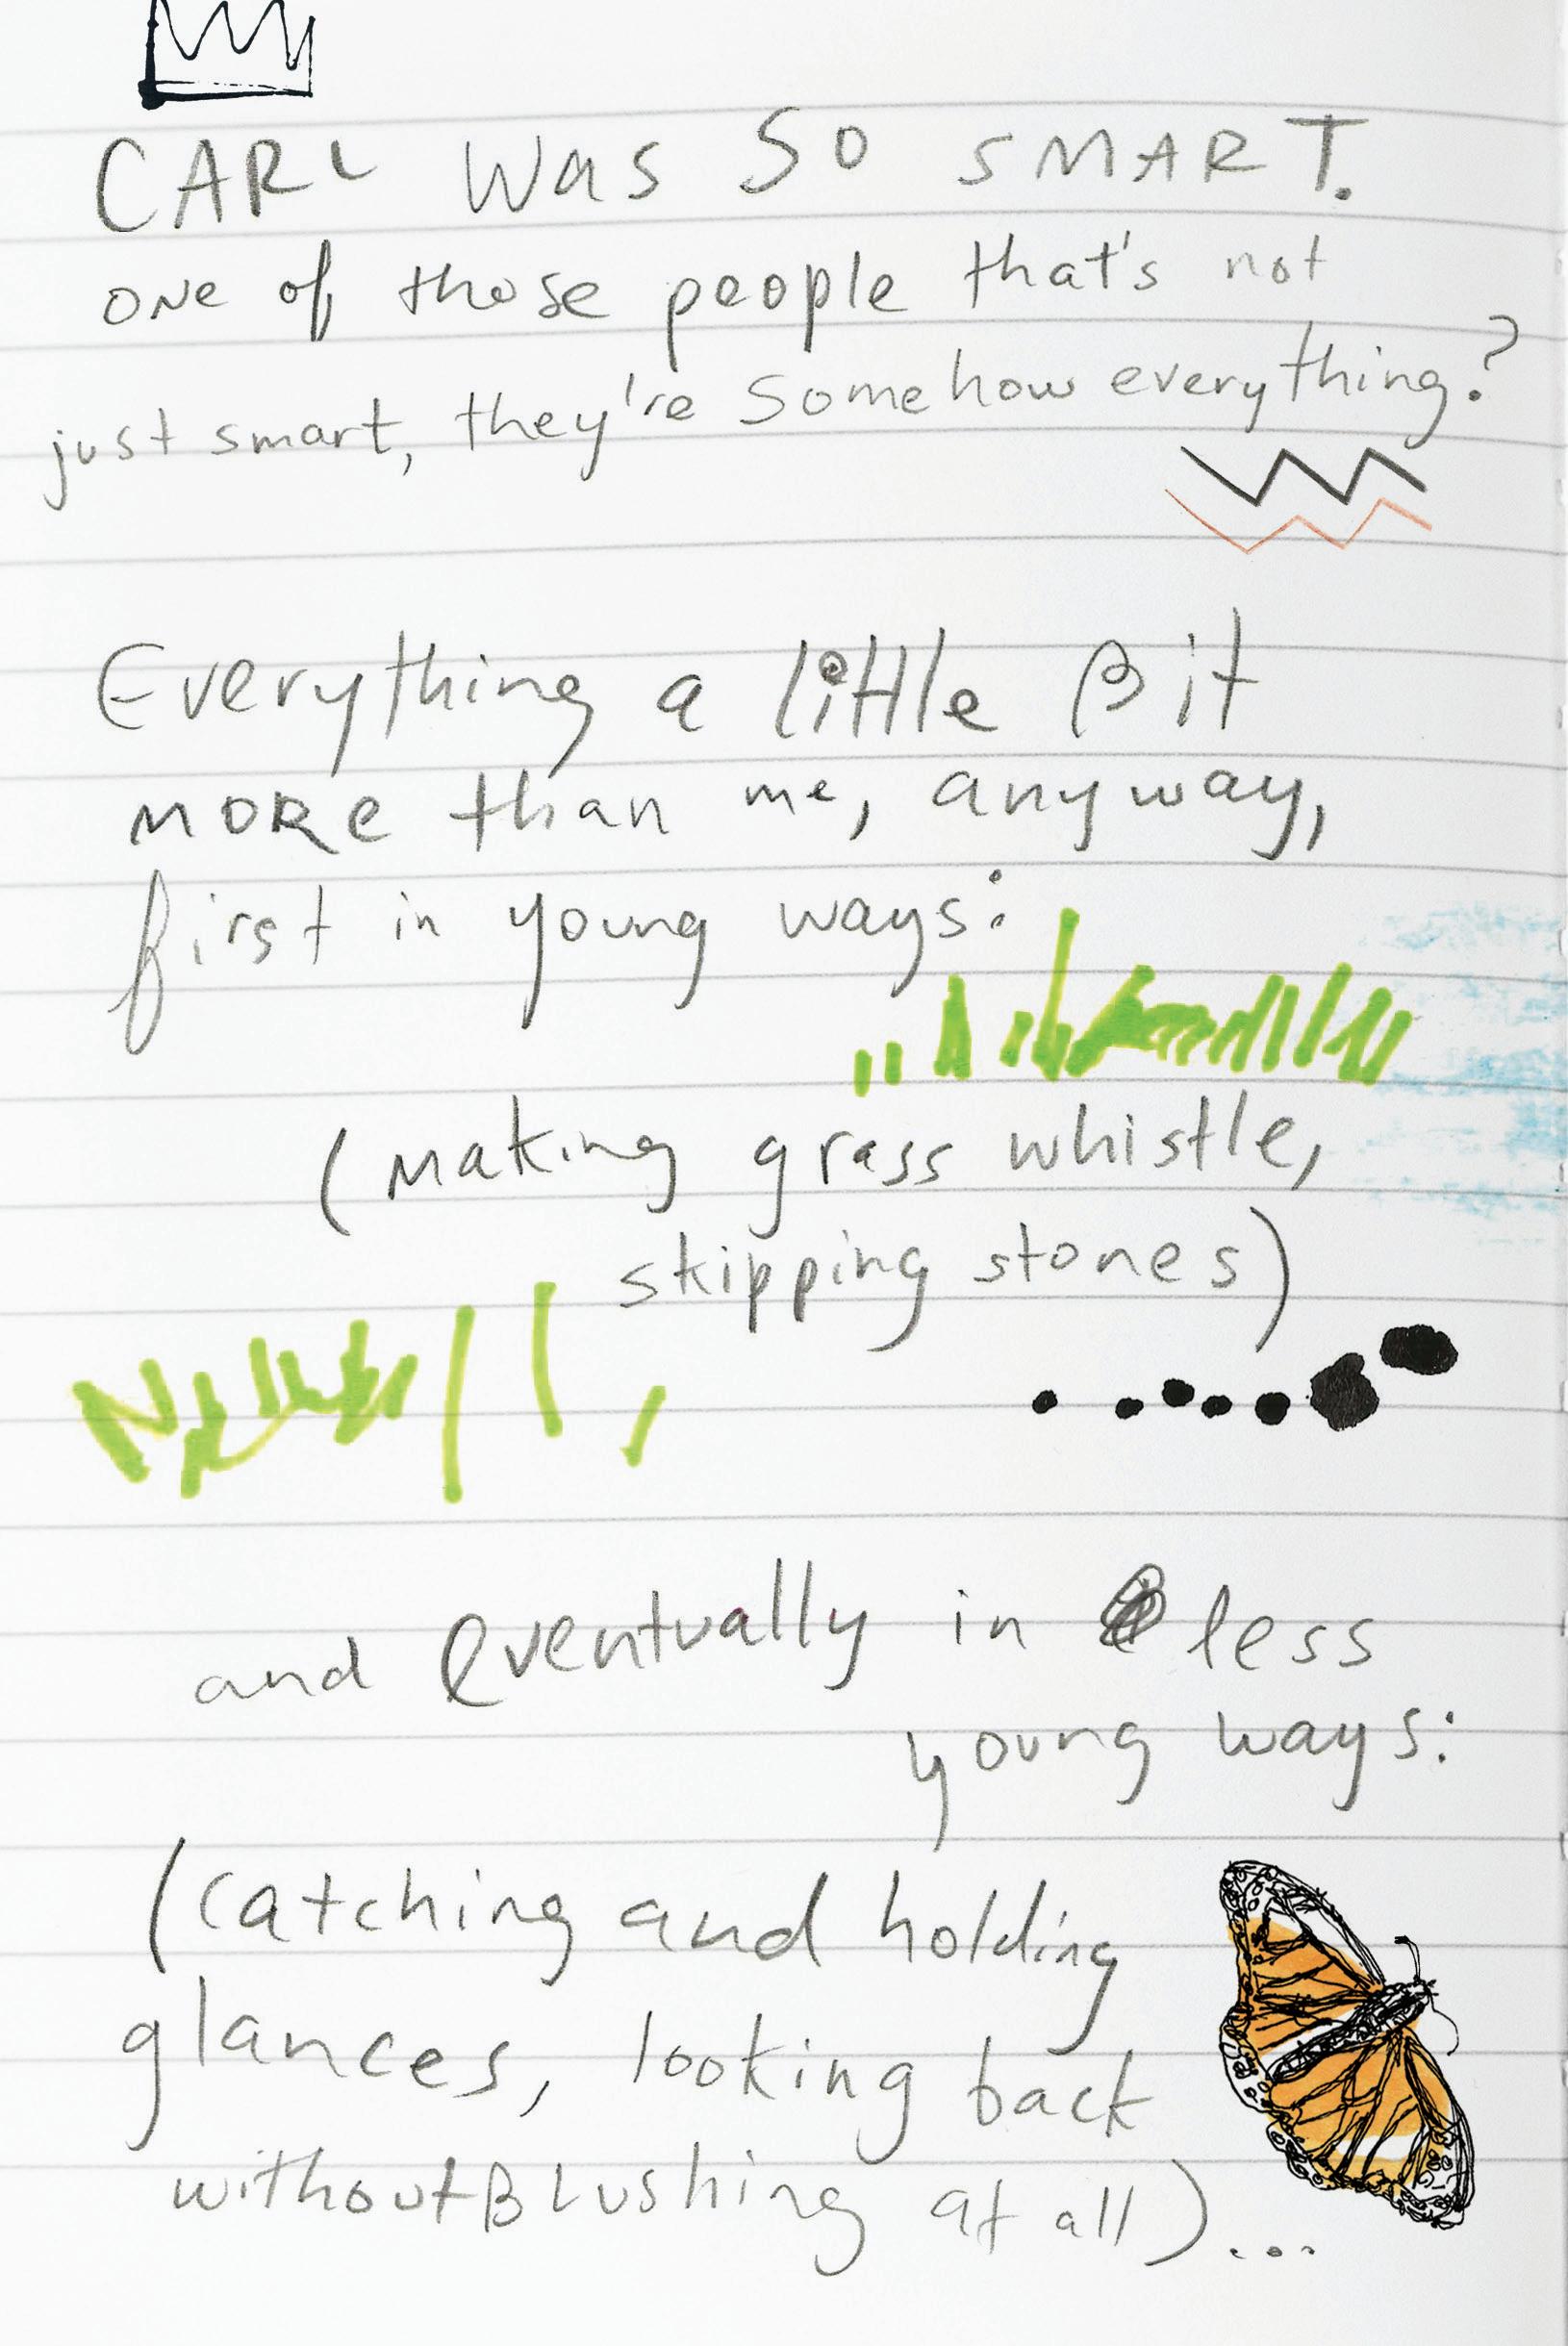 CARL WAS SO SMART.
one of those people that's not
just smart, they're somehow everything?
Everything a little Bit
more than me, anyway,
first in young ways:
(making grass whistle,
skipping stones)
and eventually in less
young ways:
(catching and holding
glances, looking back
without Blushing at all)...